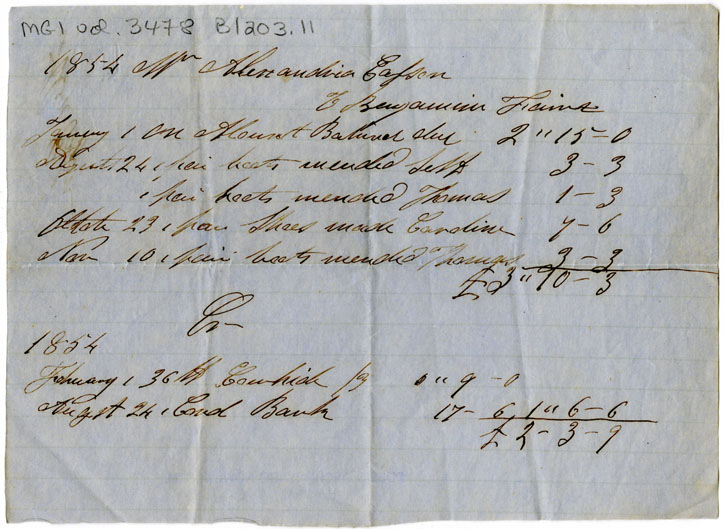 MG1 vol. 3478 B/203.11
1854 Mr Alexandria Easson
To Benjamin
January 1 on Abount Balined due 2 " 15 - 0
August 24 1 pair boots mended Self 3 - 3
1 pair boots mended Thomas 1 - 3
29 1 pair Shoes made Caroline 7 - 6
Nov 10 1 pair boots mended Thomas 3 - 3
£3 " 10 - 3
Cr
1854
February 1 36 lb Cowhide /3 0 " 9 - 0
August 24 1 Cord Bark 17 - 6 1 " 6 - 6
£ 2 - 3 - 9